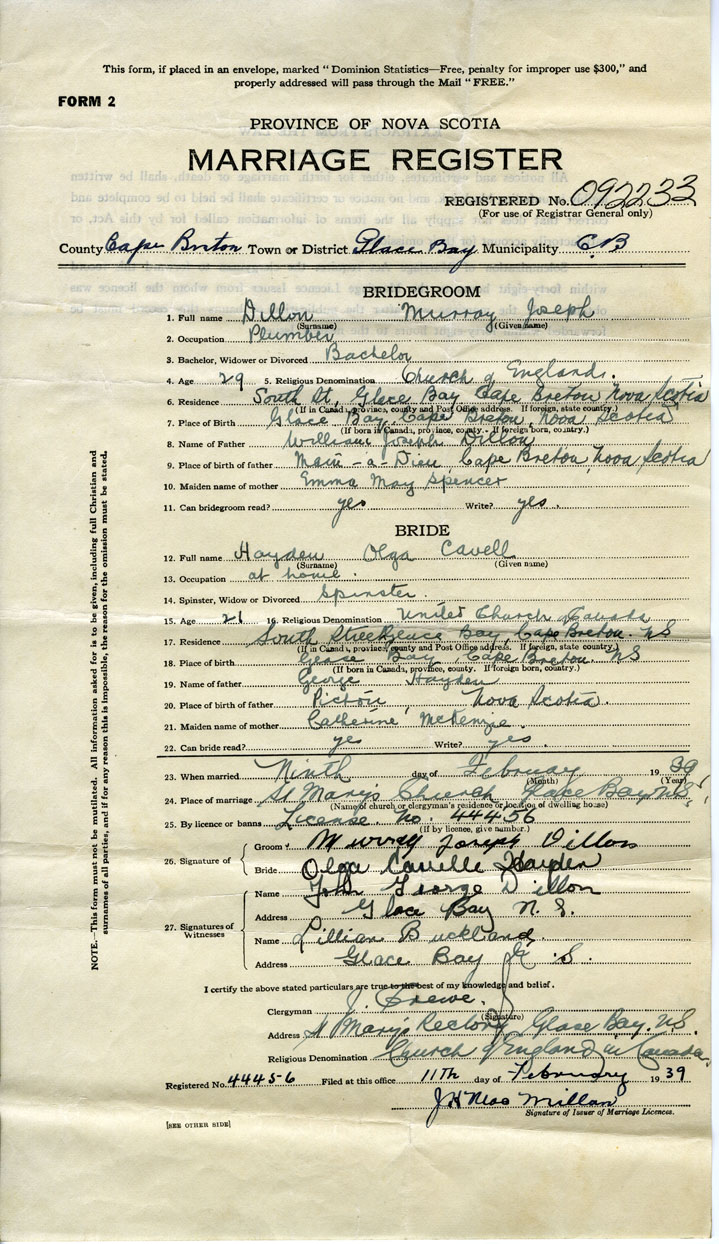 This form, if placed in an envelope, marked "Dominion Statistics—Free, penalty for improper use $300," and
properly addressed will pass through the Mail "FREE."
FORM 2
PROVINCE OF NOVA SCOTIA
MARRIAGE REGISTER
REGISTERED No. 092233
(For use of Registrar General only)
County Cape Breton Town or District Glace Bay Municipality C.B
BRIDEGROOM
1. Full name Dillon Murray Joseph
(Surname) (Given name)
2. Occupation Plumber
3. Bachelor, Widower or Divorced Bachelor
4. Age 29 5. Religious Denomination Church of England.
6. Residence South St, Glace Bay Cape Breton Nova Scotia
(If in Canada, province, county and Post Office address. If foreign, state country)
7. Place of Birth Glace Bay, Cape Breton, Nova Scotia
(If born in Canada, province, county. If foreign born, country.)
8. Name of Father William Joseph Dillon
9. Place of birth of father Main-a-Dieu, Cape Breton, Nova Scotia
10. Maiden name of mother Emma May Spencer
11. Can bridegroom read? yes Write? yes.
BRIDE
12. Full name Hayden Olga Cavell
(Surname) (Given name)
13. Occupation at home.
14. Spinster, Widow or Divorced Spinster.
15. Age 21 16. Religious Denomination United Church, Canada
17. Residence South Street Glace Bay, Cape Breton. NS
(If in Canada, province, county and Post Office address. If foreign, state country)
18. Place of birth Glace Bay, Cape Breton. NS
(If born in Canada, province, county. If foreign born, country.)
19. Name of father George Hayden
20. Place of birth of father Pictou, Nova Scotia.
21. Maiden name of mother Catherine McKenzie.
22. Can bride read? yes Write? yes.
23. When married Ninth day of February 1939
(Month) (Year)
24. Place of marriage St Mary's Church Glace Bay N.S.
(Name of church or clergyman's residence or location of dwelling house)
25. By licence or banns License No. 44456
(If by licence, give number.)
26. Signature of
Groom Murray Joseph Dillon
Bride Olga Cavelle Hayden
27. Signatures of Witnesses
Name John George Dillon
Address Glace Bay N.S.
Name Lillian Buckland
Address Glace Bay N.S.
I certify the above stated particulars are true to the best of my knowledge and belief.
Clergyman J. Crewe.
(Signature)
Address St Mary's Rectory, Glace Bay. N.S.
Religious Denomination Church of England in Canada.
Registered No. 44456 Filed at this office 11th day of February 1939
J H MacMillan
Signature of Issuer of Marriage Licences.
[SEE OTHER SIDE]
NOTE.—This form must not be mutilated. All information asked for is to be given, including full Christian and
surnames of all parties, and if for any reason this is impossible, the reason for the omission must be stated.